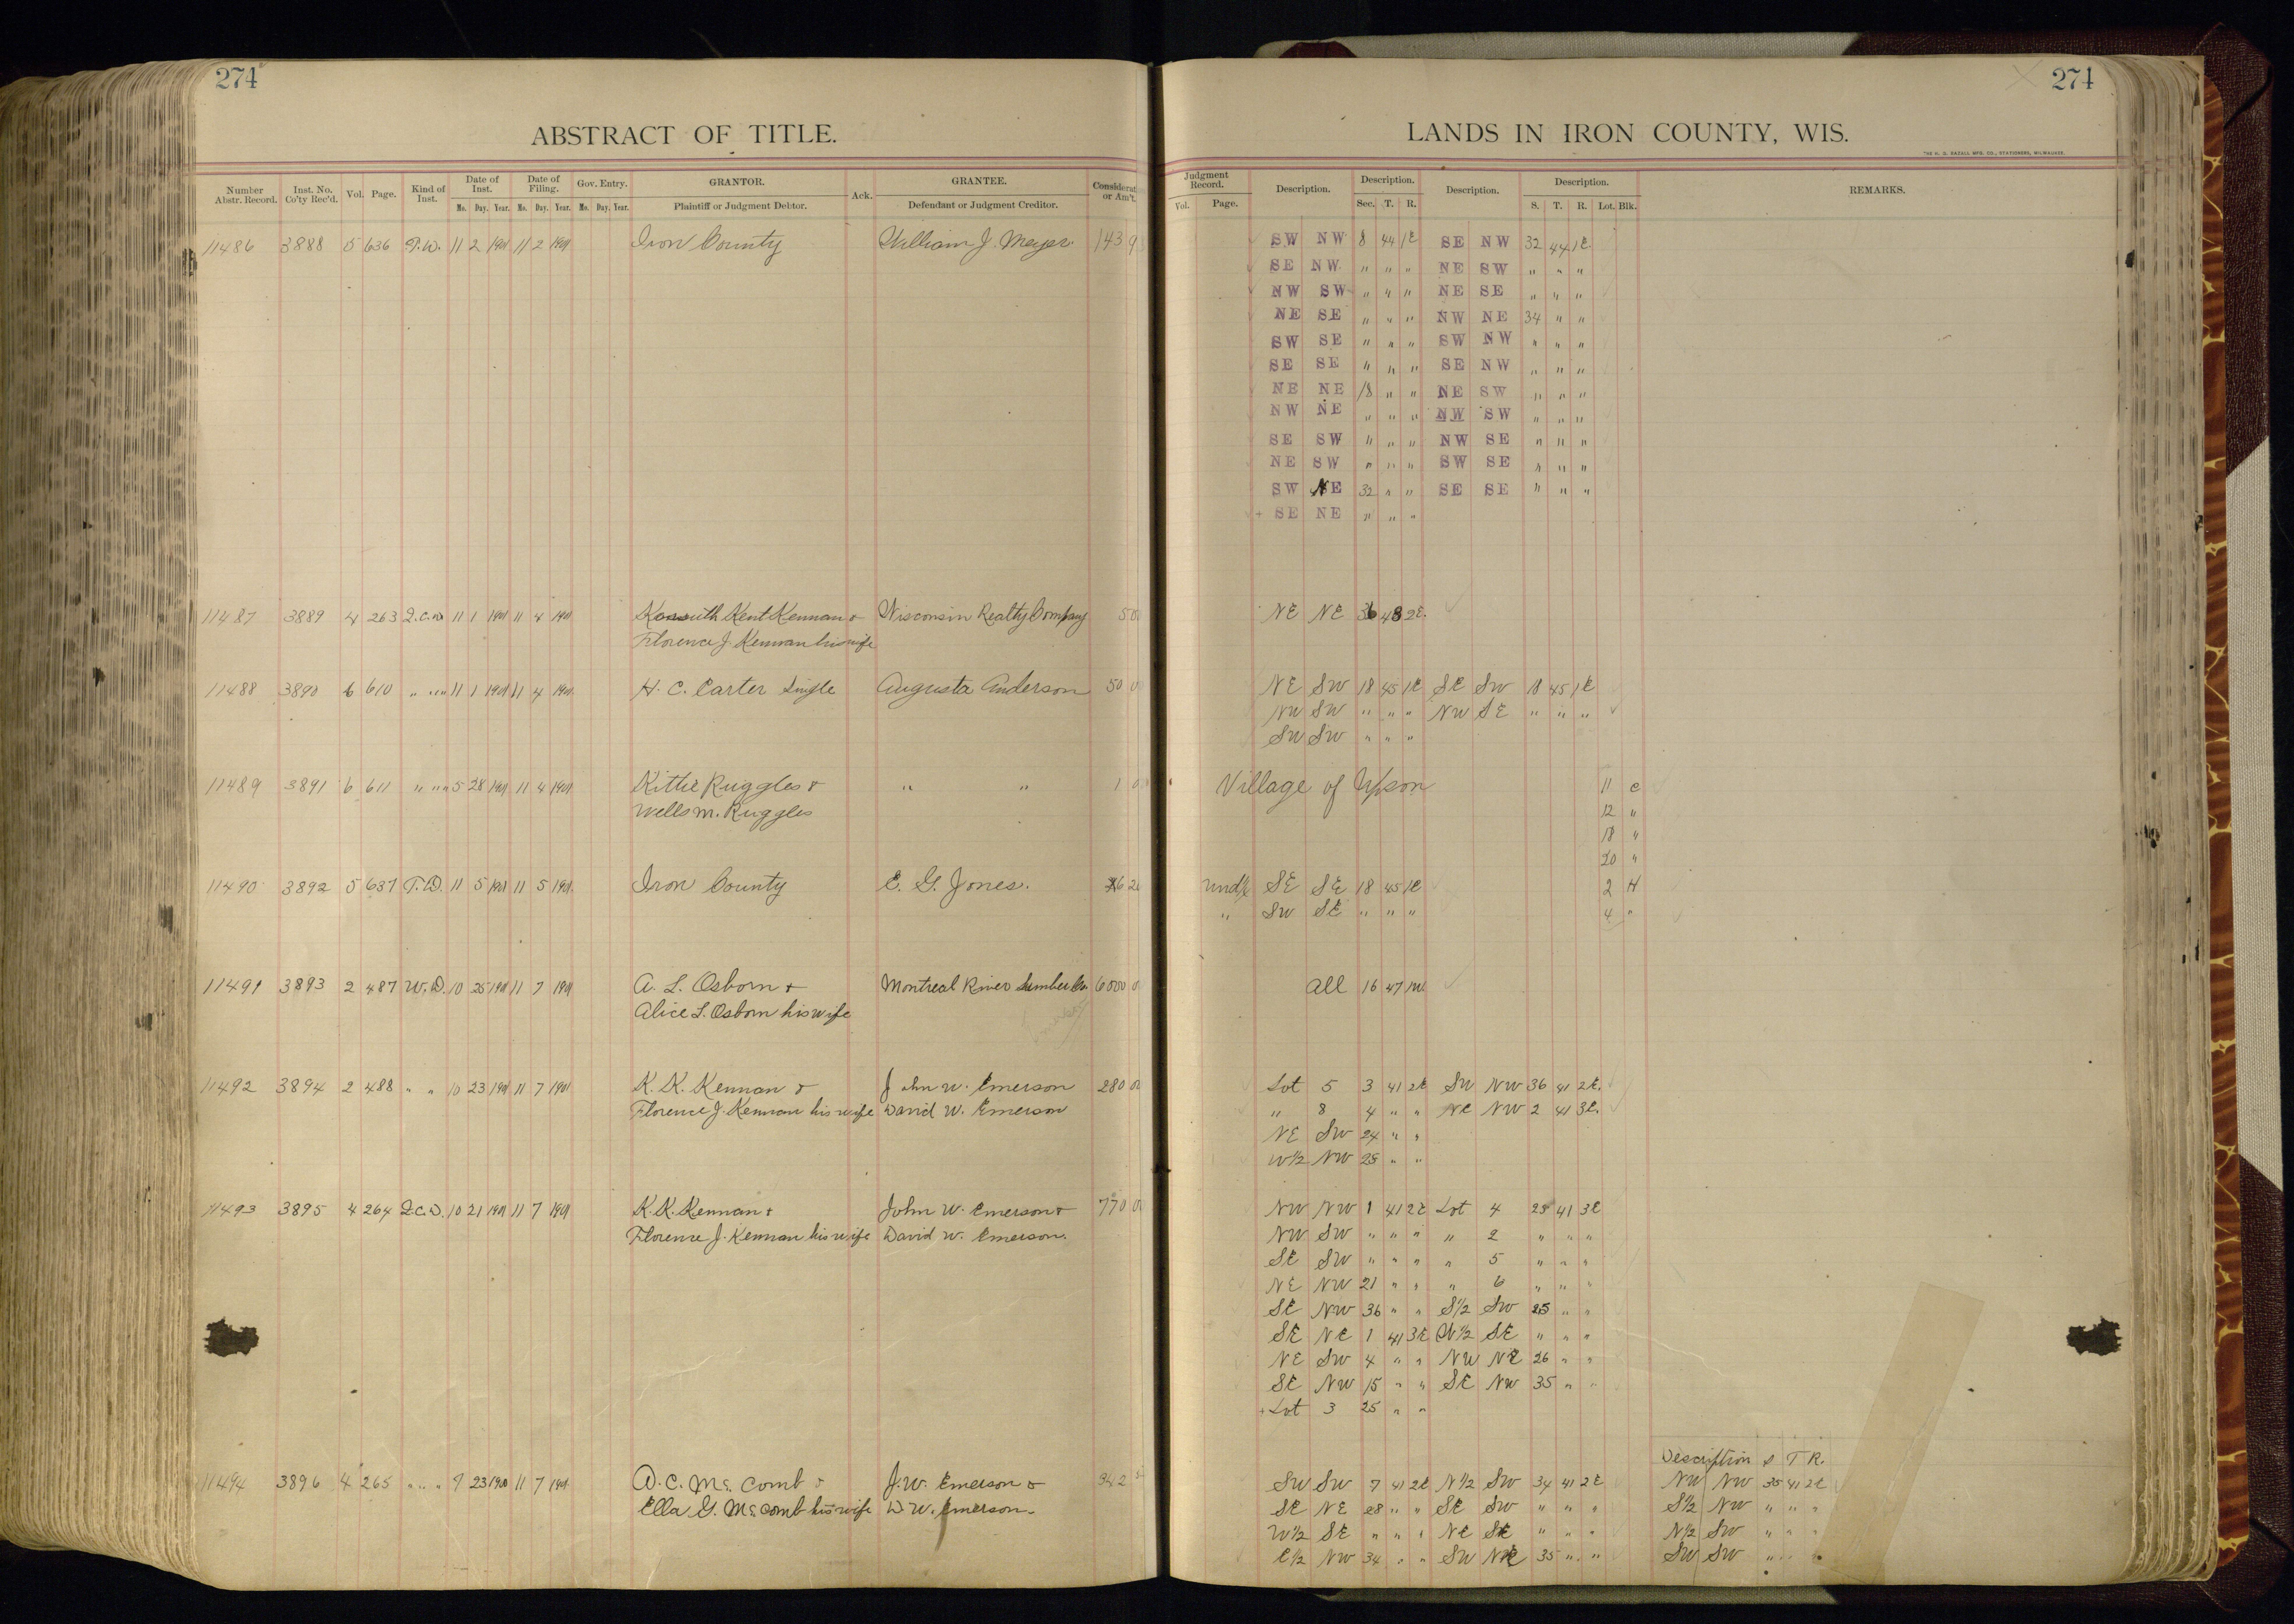 274
274
ABSTRACT OF TITLE.
LANDS IN IRON COUNTY, WIS.
THE H. G. RAZALL MFG. CO., STATIONERS, MILWAUKEE.
Number Abstr. Record. Inst. No. Co'ty Rec'd. Vol. Page. Kind of Inst. Date of Inst. Mo. Day. Year. Date of Filing. Mo. Day. Year. Gov. Entry. Mo. Day. Year. GRANTOR. Plaintiff or Judgment Debtor. Ack. GRANTEE. Defendant or Judgment Creditor. Considerat or Am't.
Judgment Record. Vol. Page. Description. Description. Sec. T. R. Description. Description. S. T. R. Lot. Blk. REMARKS.
11486 3888 5 636 11 2 1901 11 2 1901 Iron County William J. Meyer 143 9 SW NW 8 44 1E SE NW 32 44 1E
SE NW " " " NE SW " " "
NW SW " " " NE SE " " "
NE SE " " " NW NE 34 " "
SW SE " " " SW NW " " "
SE SE " " " SE NW " " "
NE NE 18 " " NE SW " " "
NW NE " " " NW SW " " "
SE SW " " " NW SE " " "
NE SW " " " SW SE " " "
SW NE 32 " " SE SE " " "
+ SE NE " " "
11487 3889 4 263 Q.C.D 11 1 1901 11 4 1901 Kent Kennan & Wisconsin Realty Company NE NE 36 43 2E.
Florence J. Kennan his wife
11488 3890 6 610 " " " 11 1 1901 11 4 1901 H. C. Carter Single Augusta Anderson 50 0 NE SW 18 45 1E SE SW 18 45 1E
NW SW " " " NW SE " " "
SW SW " " "
11489 3891 6 611 " " " 5 28 1901 11 4 1901 Kittie Ruggles & " " 1 0 Village of Upson 11 C
Wells M. Ruggles 12 "
18 "
20 "
11490 3892 5 637 T.D. 11 5 1901 11 5 1901 Iron County E. G. Jones. 6 2 SE SE 18 45 1E 2 H
" SW SE " " " 4 "
11491 3893 2 487 W.D. 10 25 1901 11 7 1901 A. L. Osborn & Montreal River Lumber Co. 6000 0 All 16 47
Alice L. Osborn his wife
11492 3894 2 488 " " 10 23 1901 11 7 1901 K. K. Kennan & John W. Emerson 280 00 Lot 5 3 41 2E SW NW 36 41 2E.
Florence J. Kennan his wife David W. Emerson " 8 4 " " NE NW 2 41 3E.
NE SW 24 " "
W½ NW 25 " "
11493 3895 4 264 Q.C.D. 10 21 1901 11 7 1901 K. K. Kennan & John W. Emerson & 770 00 NW NW 1 41 2E Lot 4 25 41 3E
Florence J. Kennan his wife David W. Emerson. NW SW " " " " 2 " " "
SE SW " " " " 5 " " "
NE NW 21 " " " 6 " " "
SE NW 36 " " S½ SW 25 " "
SE NE 1 41 3E N½ SE " " "
NE SW 4 " " NW NE 26 " "
SE NW 15 " " SE NW 35 " "
+ Lot 3 25 " "
Description S T R.
11494 3896 4 265 " " " 9 23 1900 11 7 1901 D. C. McComb & J. W. Emerson & 342 SW SW 7 41 2E N½ SW 34 41 2E NW NW 35 41 2E
Ella G. McComb his wife D. W. Emerson. SE NE 28 " " SE SW " " " S½ NW " " "
W½ SE " " " NE SE " " " N½ SW " " "
E½ NW 34 " " SW NE 35 " " SW SW " " "